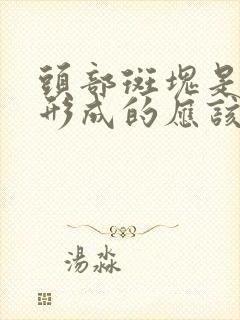 頭部斑塊是
形成的應該
湯淼